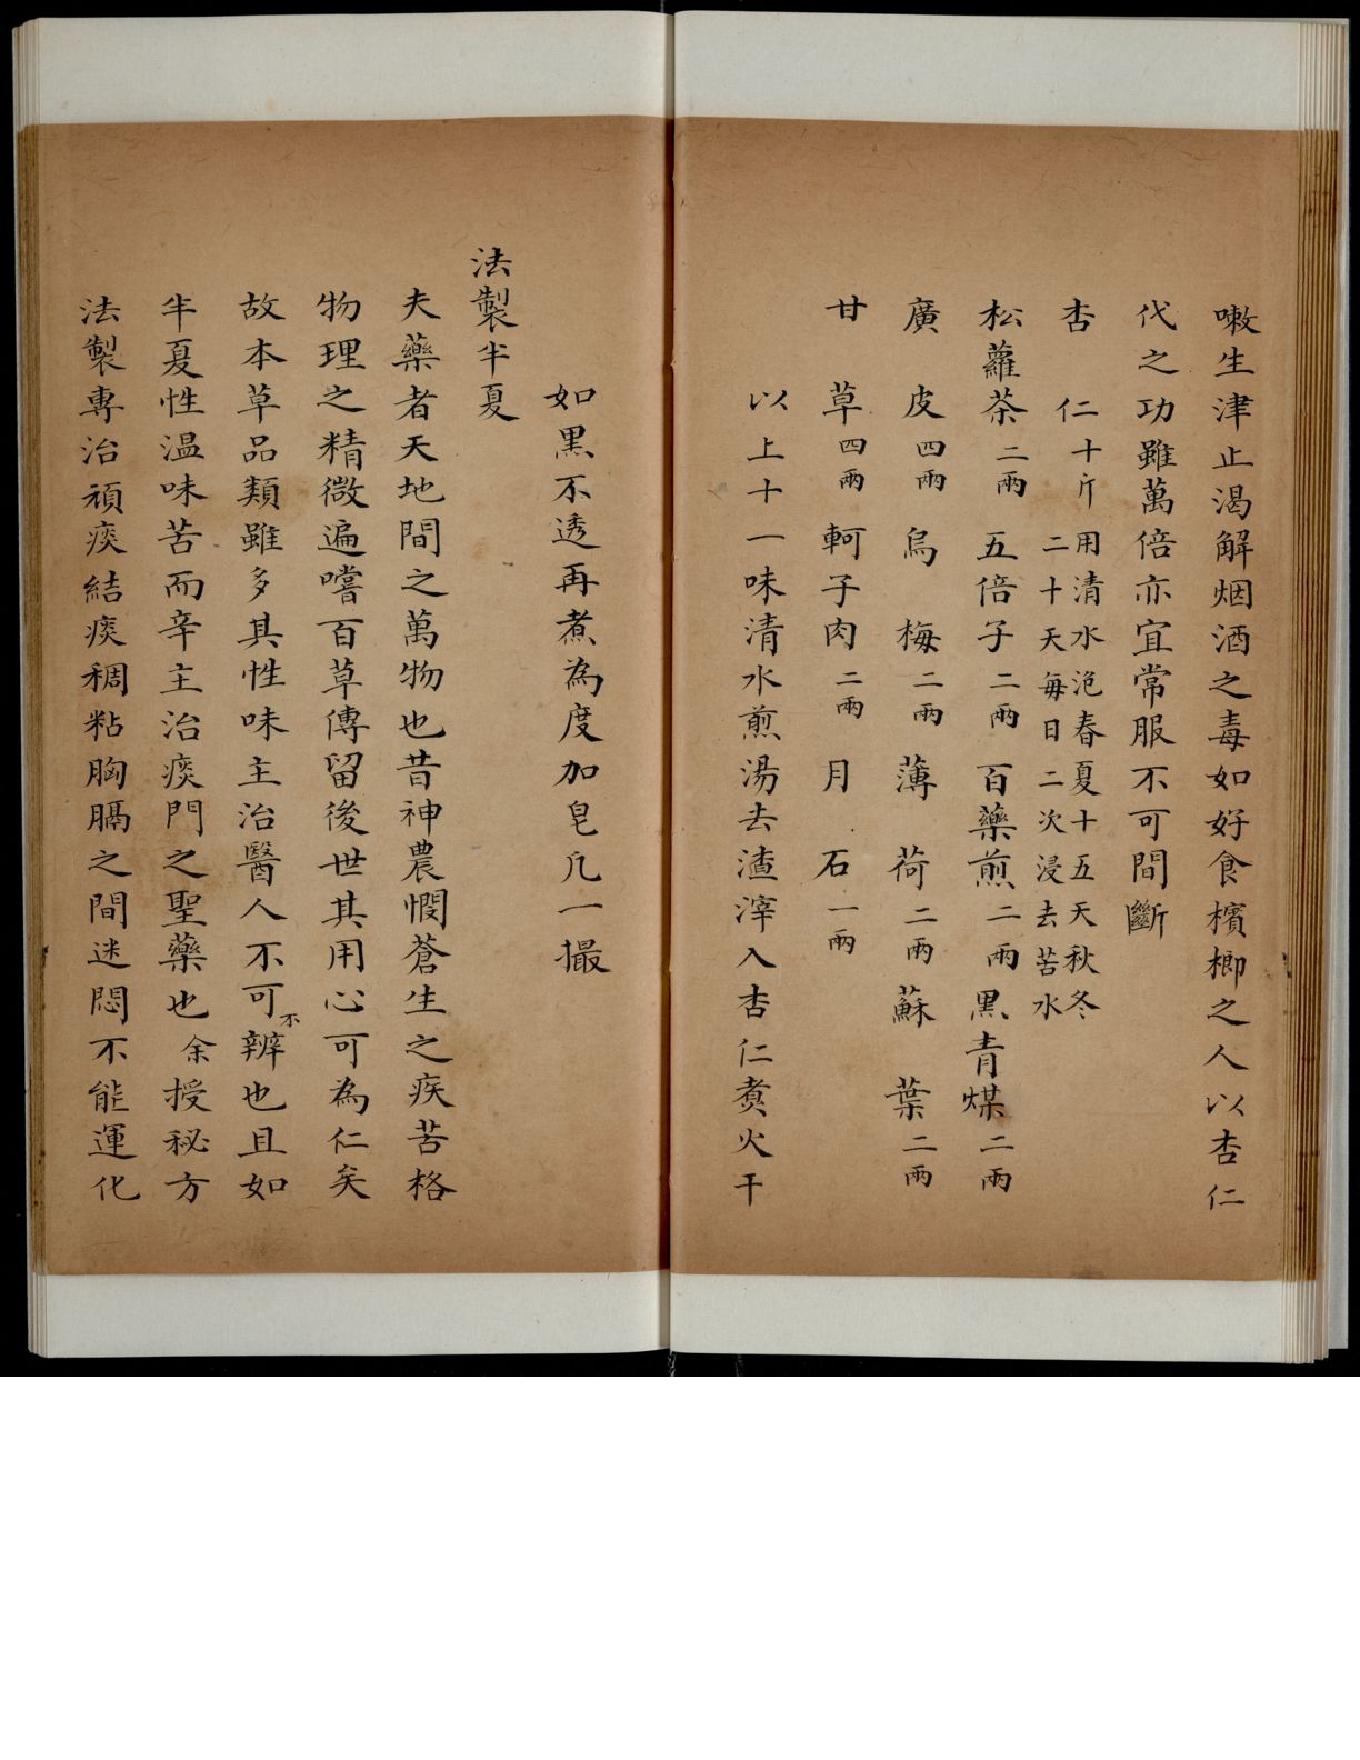 嗽生津止渴解烟酒之毒如好食檳榔之人以杏仁
代之功雖萬倍亦宜常服不可間斷
杏仁十斤用清水浥春夏十五天秋冬
二十天每日二次浸去苦水
松蘿茶二兩五倍子二兩百藥煎二兩黑青煤二兩
廣皮四兩烏梅二兩薄荷二兩蘇葉二兩
甘草四兩軻子肉二兩月石一兩
以上十一味清水煎湯去渣滓入杏仁煑火干
如黑不透再煮為度加皂凡一撮
法製半夏
夫藥者天地間之萬物也昔神農憫蒼生之疾苦格
物理之精微遍嚐百草傳留後世其用心可為仁矣
故本草品類雖多其性味主治醫人不可不辧也且如
半夏性温味苦而辛主治痰門之聖藥也余授秘方
法製專治頑痰結痰稠粘胸膈之間迷悶不能運化